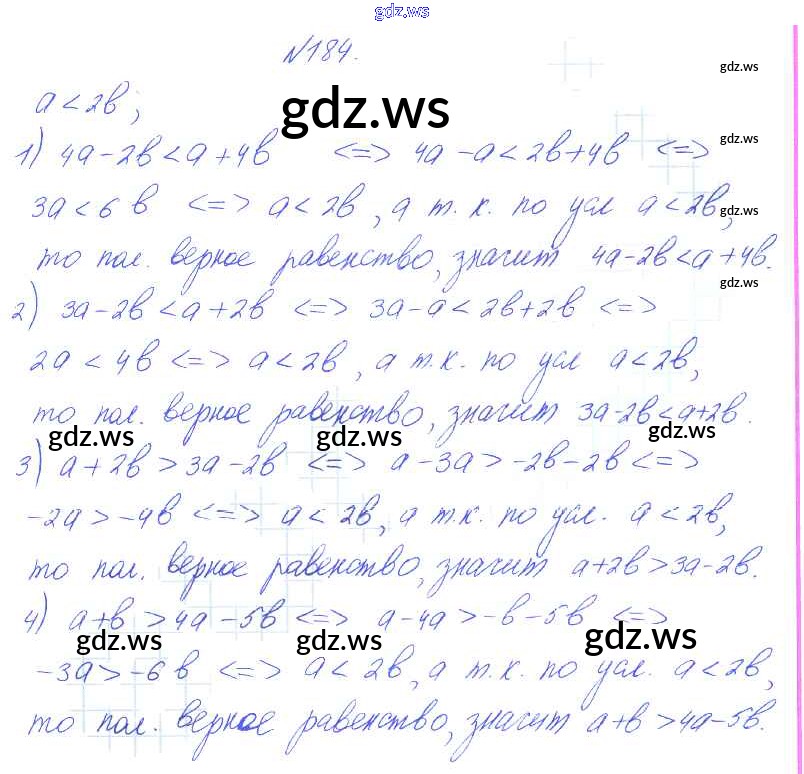 gdz.ws
№184.
gdz.ws
a < 2b;
gdz.ws
gdz.ws
1) 4a-2b<a+4b <=> 4a-a<2b+4b <=>
3a<6b <=> a<2b, а т.к. по усл a<2b,
gdz.ws
то пол. верное равенство, значит 4a-2b<a+4b.
gdz.ws
2) 3a-2b<a+2b <=> 3a-a<2b+2b <=>
2a<4b <=> a<2b, а т.к. по усл a<2b,
то пол. верное равенство, значит 3a-2b<a+2b.
gdz.ws gdz.ws gdz.ws
3) a+2b>3a-2b <=> a-3a>-2b-2b <=>
-2a>-4b <=> a<2b, а т.к. по усл. a<2b,
то пол. верное равенство, значит a+2b>3a-2b.
4) a+b>4a-5b <=> a-4a>-b-5b <=>
gdz.ws gdz.ws gdz.ws
-3a>-6b <=> a<2b, а т.к. по усл. a<2b,
то пол. верное равенство, значит a+b>4a-5b.